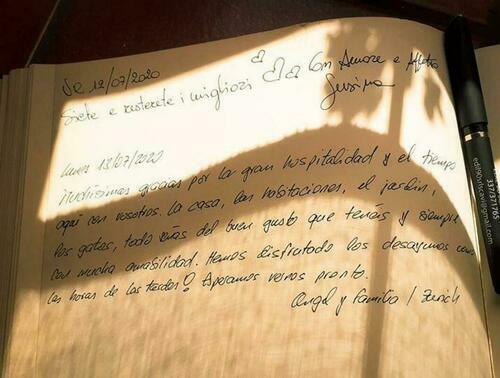 12/07/2020
Siete e resterete i migliori
Con Amore e Affetto
lunes 13/07/2020
Muchísimas gracias por la gran hospitalidad y el tiempo
aquí con vosotros. La casa, las habitaciones, el jardín,
los gatos, todo del buen gusto que tenéis y siempre
con mucha amabilidad. Hemos disfrutado los desayunos como
las horas de las tardes! Esperamos vernos pronto.
Angel y familia / Zurich